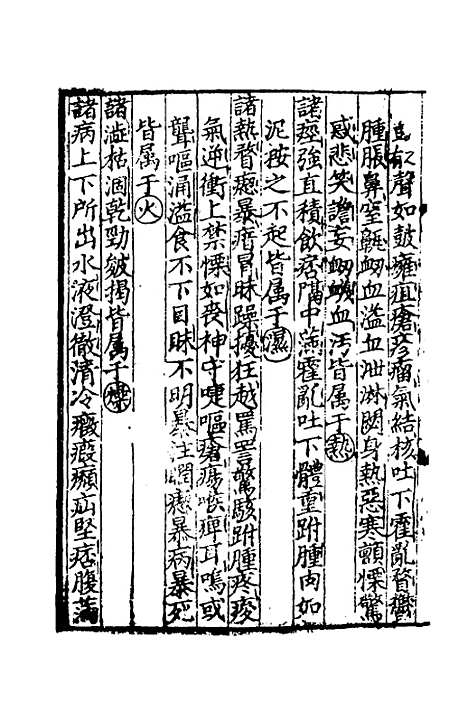 有聲如鼓癰疽瘡疹瘤氣結核吐下霍亂瞀鬱
腫脹鼻窒鼽衂血溢血泄淋閟身熱惡寒顫慄驚
惑悲笑譫妄衂衊血汚皆属于熱
諸痙強直積飲痞膈中滿霍亂吐下體重跗腫肉如
泥按之不起皆属于濕
諸熱瞀瘛暴瘖冒昧躁擾狂越罵詈驚駭跗腫疼痠
氣逆衝上禁慄如丧神守嚏嘔瘡瘍喉痺耳鳴或
聾嘔涌溢食不下目昧不明暴注瞤瘛暴病暴死
皆属于火
諸澁枯涸乾勁皴揭皆属于燥
諸病上下所出水液澄徹清冷癥瘕㿗疝堅痞腹滿